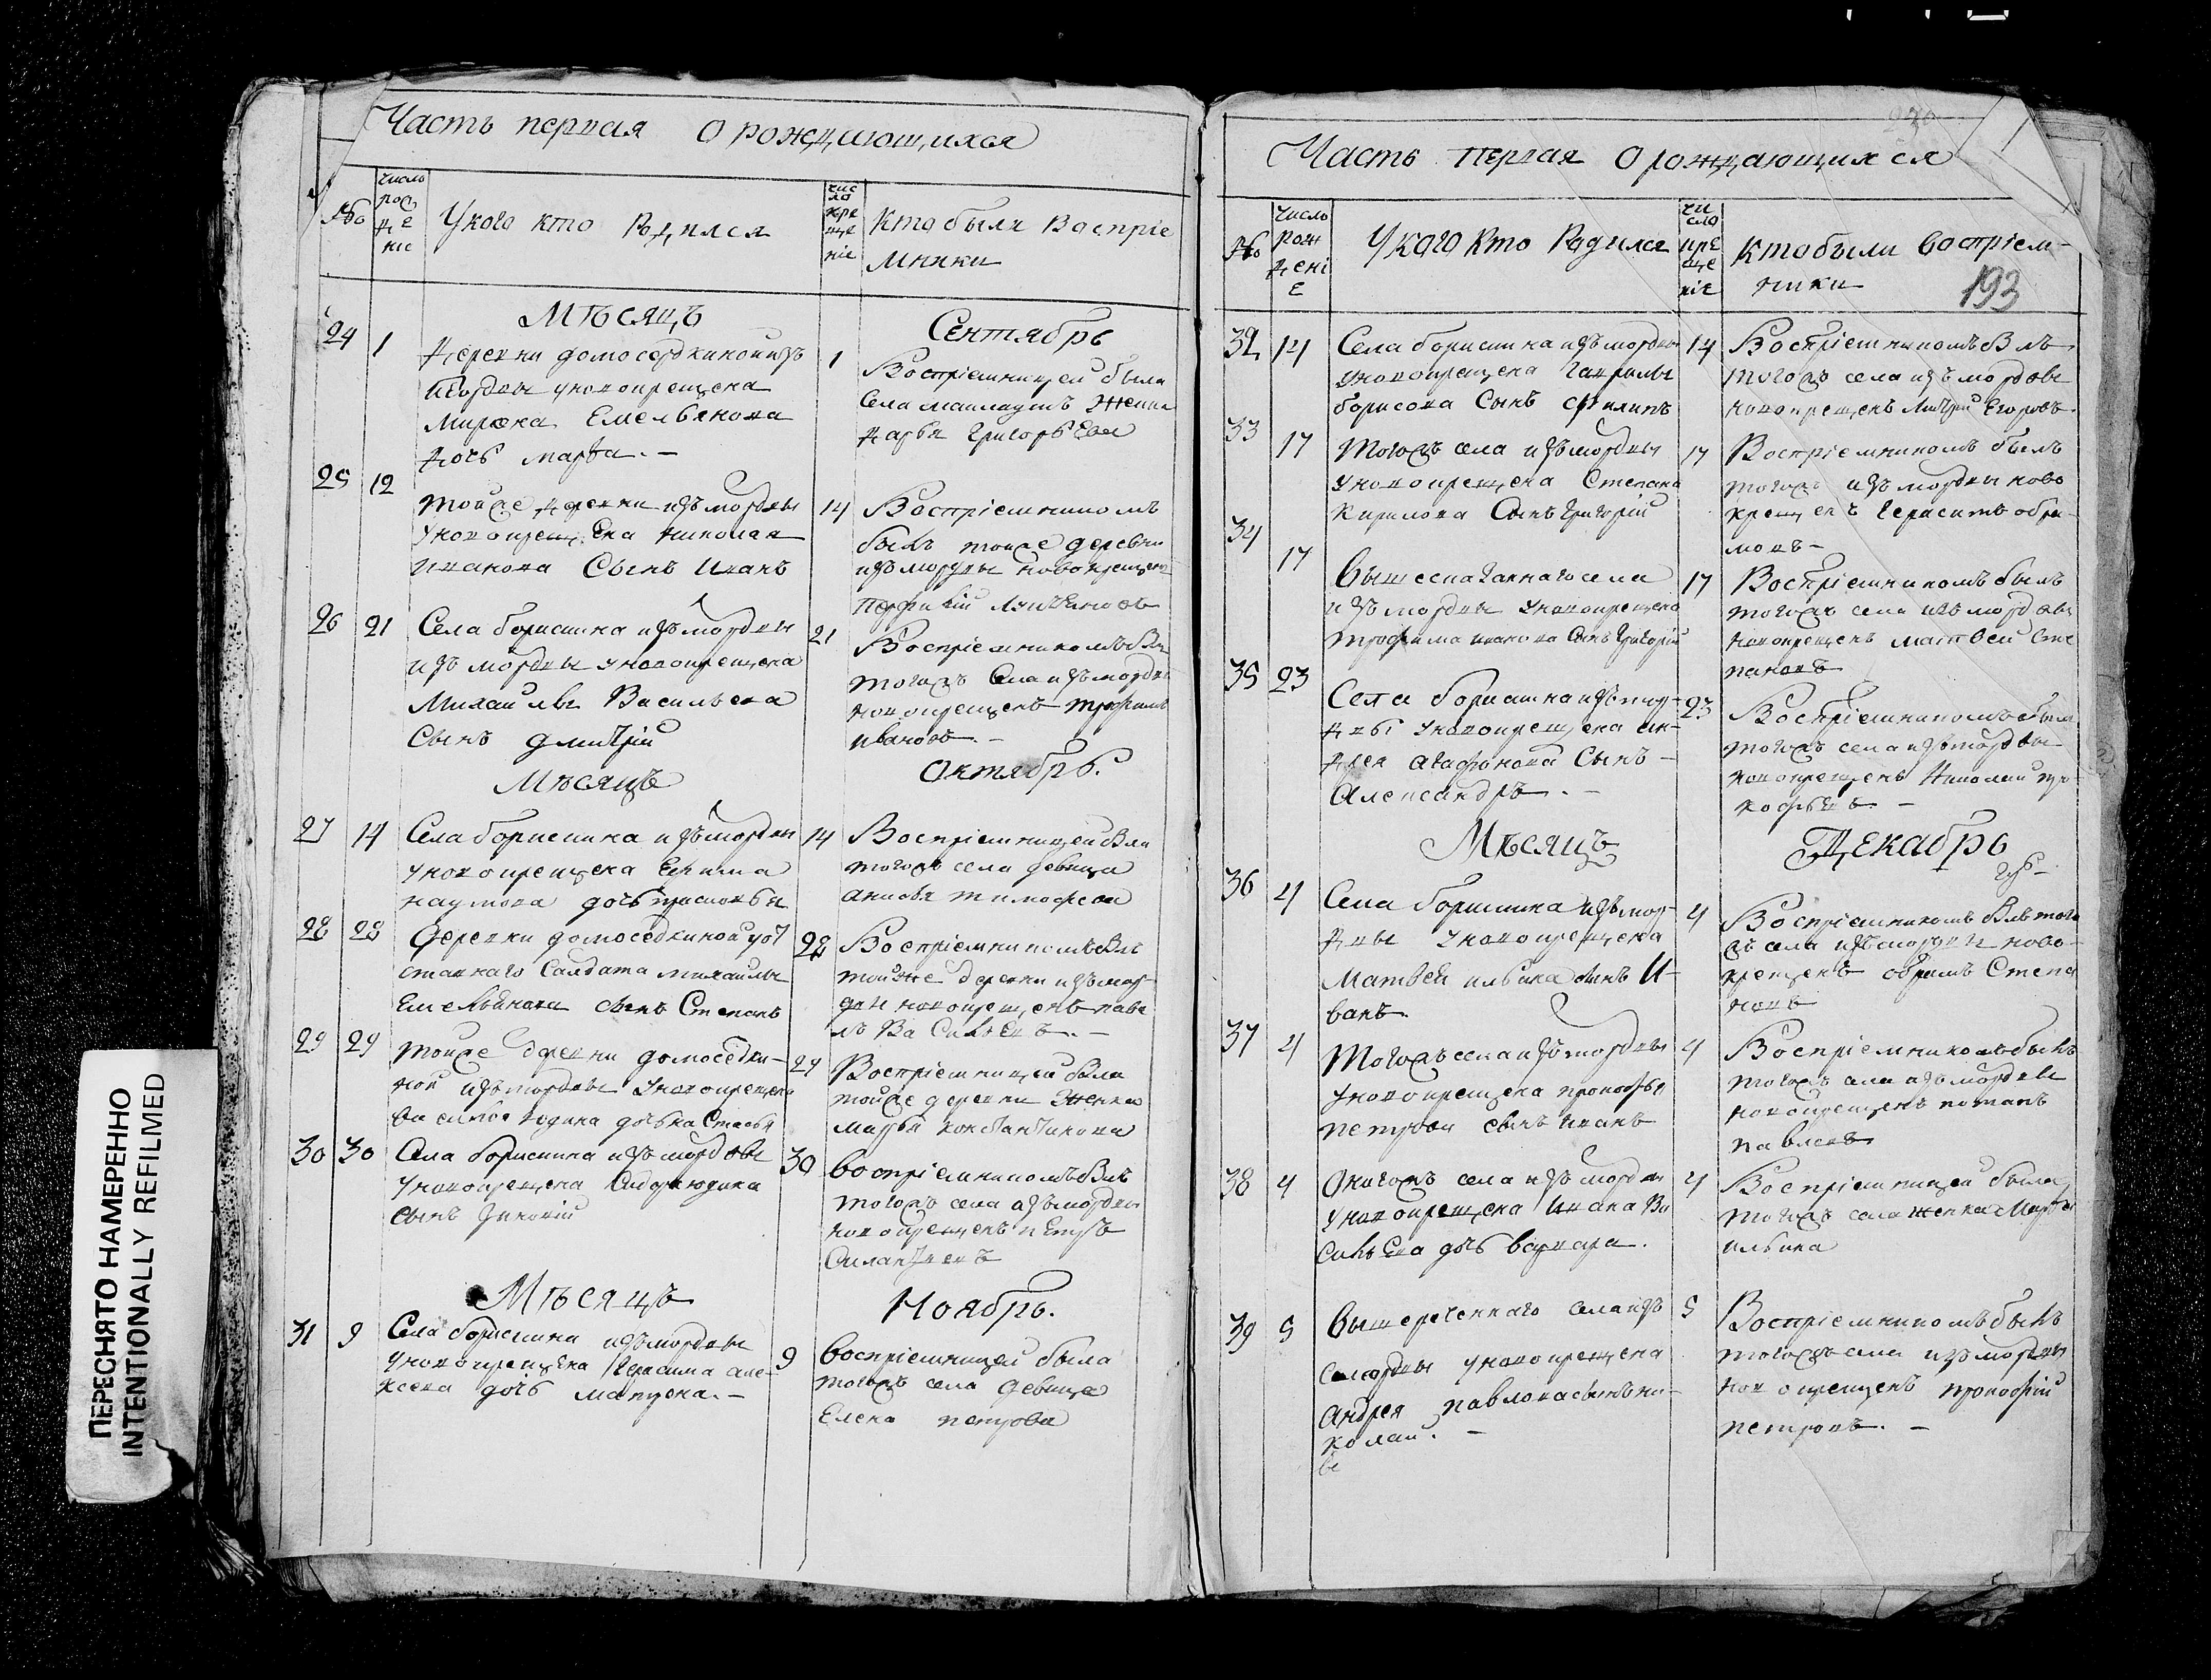 Часть первая о рождающихся
№
число рождение
У кого кто родился
число крещеніе
Кто были воспріе
мники
Мѣсяцъ
Сентябрь
24 1
Деревни домосердкиной изъ
мордвы у новокрещена
Емельянова
дочь марфа. -
1
Воспріемницей была
Села женка
дарья григорьева
25 12
тойже деревни изъ мордвы
у новокрещена николая
иванова Сынъ иванъ
14
Воспріемникомъ
былъ тойже деревни
изъ мордвы новокрещенъ
26 21
Села борисшина изъ мордвы
изъ мордвы у новокрещена
Михаилы Васильева
Сынъ дмитрій
21
Воспріемникомъ былъ
тогожъ села изъ мордвы
новокрещенъ трофимъ
ивановъ. -
Мѣсяцъ
Октябрь.
27 14
Села борисшина изъ мордвы
у новокрещена Ефима
наумова дочь
14
Воспріемницей была
тогожъ села девица
анисья тимофеева
28 28
Деревни домосердкиной у от
ставнаго Салдата михаилы
Емельянова сынъ Степанъ
28
Воспріемникомъ былъ
тойже деревни изъ мор-
двы новокрещенъ паве
лъ Васильевъ. -
29 29
тойже деревни домосердки-
ной изъ мордвы у новокрещена
29
Воспріемницей была
тойже деревни женка
марья константинова
30 30
Села борисшина изъ мордвы
у новокрещена
сынъ
30
воспріемникомъ былъ
тогожъ села изъ мордвы
новокрещенъ петръ
Силантьевъ
Мѣсяцъ
Ноябрь.
31 9
Села борисшина изъ мордвы
у новокрещена герасима але-
ксеева дочь -
9
воспріемницей была
тогожъ села девица
Елена петрова
Часть первая о рождающихся
№
Число рожденіе
У кого кто родился
число крещеніе
Кто были воспріем-
ники
193
32 14
Села борисшина изъ мордвы
у новокрещена гаврилы
борисова Сынъ филипъ
14
Воспріемникомъ былъ
тогожъ села изъ мордвы
новокрещенъ дмитрій Егоровъ.
33 17
тогожъ села изъ мордвы
у новокрещена Степана
кирилова Сынъ григорій
17
Воспріемникомъ былъ
тогожъ изъ мордвы ново
крещенъ герасимъ абра-
мовъ -
34 17
вышесказаннаго села
изъ мордвы у новокрещена
трофима иванова Сынъ григорій
17
Воспріемникомъ былъ
тогожъ села изъ мордвы
новокрещенъ матвей Сте
пановъ
35 23
Села борисшина изъ мор-
двы у новокрещена ан-
дрея агафонова Сынъ -
Александръ. -
23
Воспріемникомъ былъ
тогожъ села изъ мордвы
новокрещенъ николай про-
кофьевъ -
Мѣсяцъ
Декабрь
36 4
Села борисшина изъ мор-
двы у новокрещена
Матвея ильина сынъ И-
ванъ.
4
Воспріемникомъ былъ того
жъ села изъ мордвы ново-
крещенъ абрамъ Степа
новъ
37 4
тогожъ села изъ мордвы
у новокрещена прокофья
петрова сынъ иванъ
4
Воспріемникомъ былъ
тогожъ села изъ мордвы
новокрещенъ романъ
павловъ
38 4
Оногожъ села изъ мордвы
у новокрещена ивана Ва
сильева дочь варвара.
4
Воспріемницей была
тогожъ села женка Марфа
ильина
39 5
вышереченнаго села изъ
мордвы у новокрещена
андрея павлова сынъ ни-
колай. -
5
Воспріемникомъ былъ
тогожъ села изъ мордвы
новокрещенъ прокофій
петровъ. -
ПЕРЕСНЯТО НАМЕРЕННО
INTENTIONALLY REFILMED